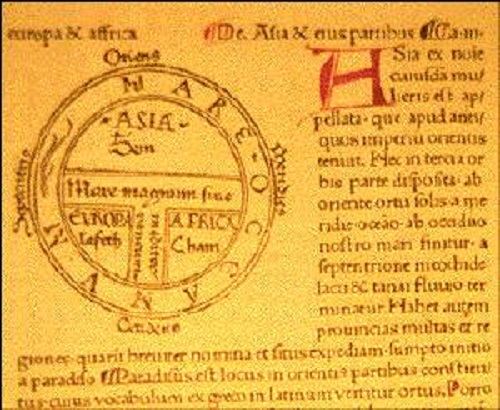 europa & affrica
¶De. Asia & eius partibus ¶Ca·m·
Oriens
MARE OCCEANVM
Septentrio
Meridies
ASIA
Sem
Mare magnum siue
EVROPA
Iafeth
AFRICA
Cham
Asia ex noie
cuiusdā mu/
lieris est ap/
pellata· que apud anti/
quos imperiū orientis
tenuit. Hec in tercia or
bis parte disposita· ab
oriente ortu solis· a me
ridie· oceāo· ab occiduo
nostro mari finitur· a
septentrione meothide
lacu & tanai fluuio ter
minatur· Habet autem
prouincias multas et re
giones· quarū breuiter nomina et situs expediam· sumpto initio
a paradiso ¶Paradisus est locus in orientis partibus consti
tus· cuius vocabulum ex greco in latinum vertitur ortus. Porro